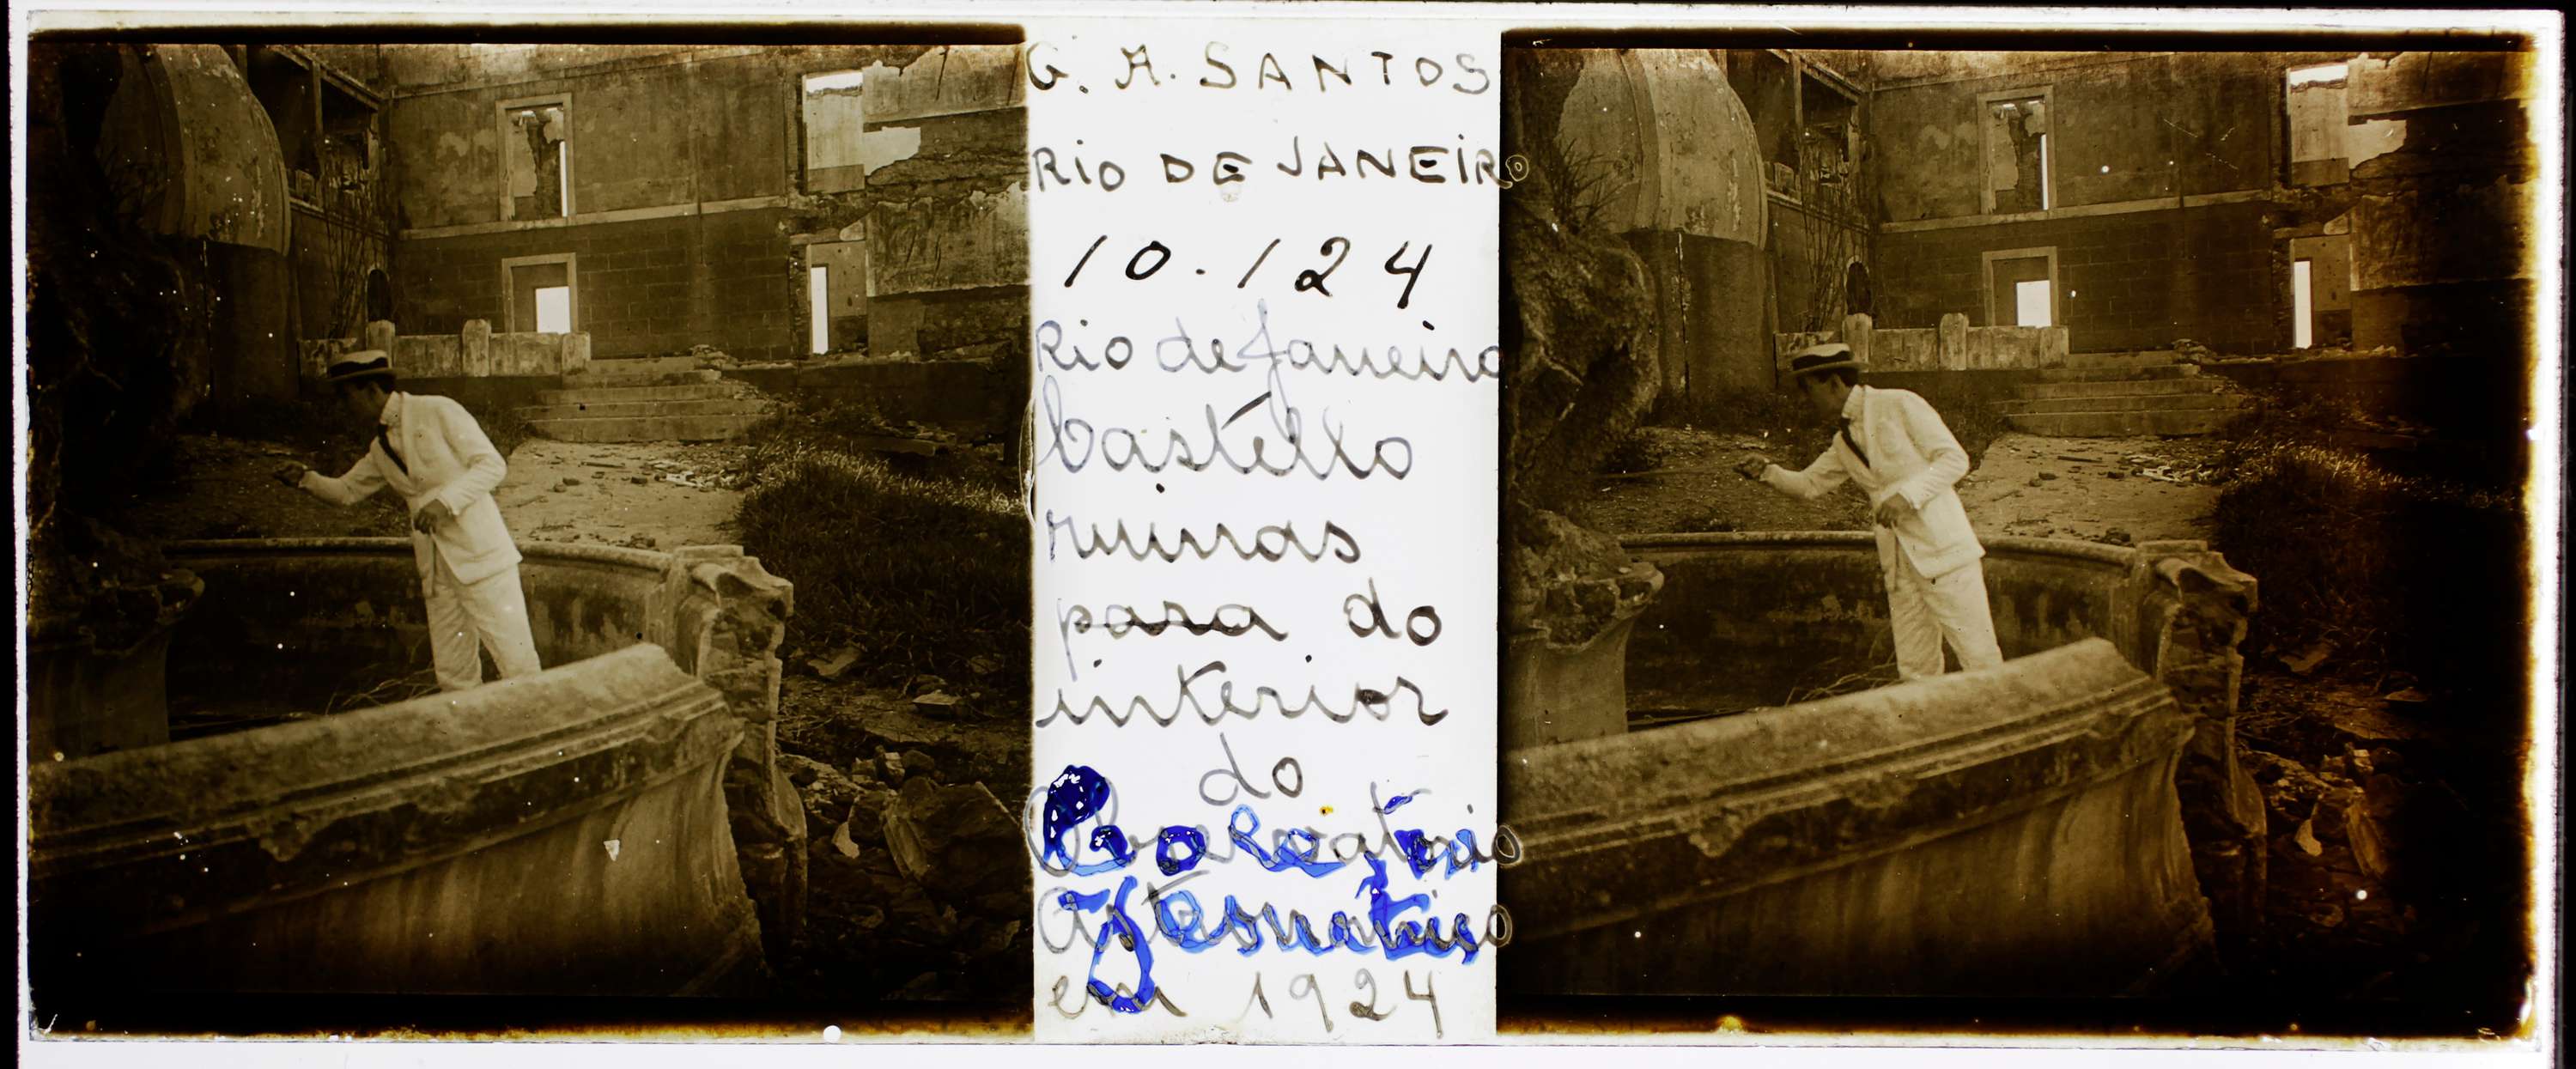 G. A. SANTOS
RIO DE JANEIRO
10.124
Rio de Janeiro
Castello
ruinas
para do
interior
do
Observatorio
Astronomico
em 1924